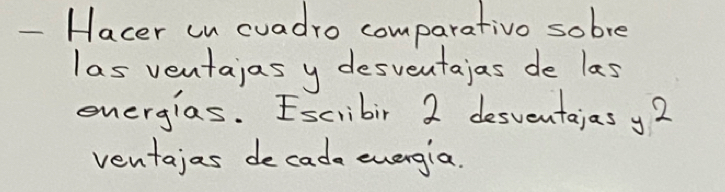 - Hacer un cuadro comparativo sobre
las ventajas y desventajas de las
energías. Escribir 2 desventajas y 2
ventajas de cada energía.